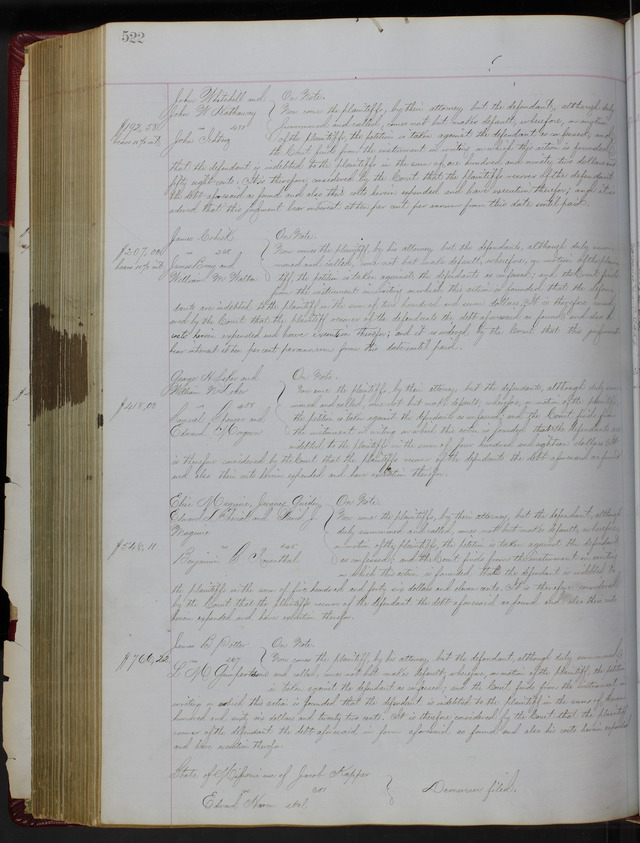 522
John Whitehill and } On Note.
John W Hathaway Now come the plaintiffs, by their attorney, but the defendant, although duly
$192.58 vs 411 summoned and called, comes not but makes default, wherefore, on motion
bears 10% int John of the plaintiffs, the petition is taken against the defendant as confessed, and
the Court finds from the instrument in writing on which this action is founded
that the defendant is indebted to the plaintiffs in the sum of one hundred and ninety two dollars and
fifty eight cents. It is therefore considered by the Court that the plaintiffs recover of the defendant
the debt aforesaid as found and also their costs herein expended and have execution therefor; and it is
ordered that this judgment bear interest at ten per cent per annum from this date until paid.
James } On Note.
$207.00 vs Now comes the plaintiff, by his attorney, but the defendants, although duly
bears 10% int James and and called, come not but make default, wherefore, on motion of the
William M the petition is taken against the defendants as confessed, and the Court finds
from the instrument in writing on which this action is founded that the
are indebted to the plaintiff in the sum of two hundred and seven dollars. It is therefore
by the Court that the plaintiff recover of the defendants the debt aforesaid as found and also his
costs herein expended and have execution therefor; and it is ordered by the Court that this judgment
bear interest at ten per cent per annum from this date until paid.
George H and } On Note.
William Now come the plaintiffs, by their attorney, but the defendants, although duly
$418.00 vs and called, come not but make default, wherefore, on motion of the plaintiffs
and the petition is taken against the defendants as confessed, and the Court finds from
Edward Maguire the instrument in writing on which this action is founded that the defendants are
indebted to the plaintiffs in the sum of four hundred and eighteen dollars. It
is therefore considered by the Court that the plaintiffs recover of the defendants the debt aforesaid as found
and also their costs herein expended and have execution therefor.
Maguire, } On Note.
Edward and Now come the plaintiffs, by their attorney, but the defendant, although
Maguire duly summoned and called, comes not but makes default, wherefore,
$546.11 vs on motion of the plaintiffs, the petition is taken against the defendant
Benjamin Rosenthal as confessed, and the Court finds from the instrument in writing
on which this action is founded that the defendant is indebted to
the plaintiffs in the sum of five hundred and forty six dollars and eleven cents. It is therefore considered
by the Court that the plaintiffs recover of the defendant the debt aforesaid as found and also their costs
herein expended and have execution therefor.
James B } On Note.
$766.22 vs Now comes the plaintiff, by his attorney, but the defendant, although duly summoned
L M and called, comes not but makes default, wherefore, on motion of the plaintiff, the petition
is taken against the defendant as confessed, and the Court finds from the instrument in
writing on which this action is founded that the defendant is indebted to the plaintiff in the sum of seven
hundred and sixty six dollars and twenty two cents. It is therefore considered by the Court that the plaintiff
recover of the defendant the debt aforesaid in form aforesaid as found and also his costs herein expended
and have execution therefor.
State of Missouri use of Jacob }
vs Demurrer filed.
et al.